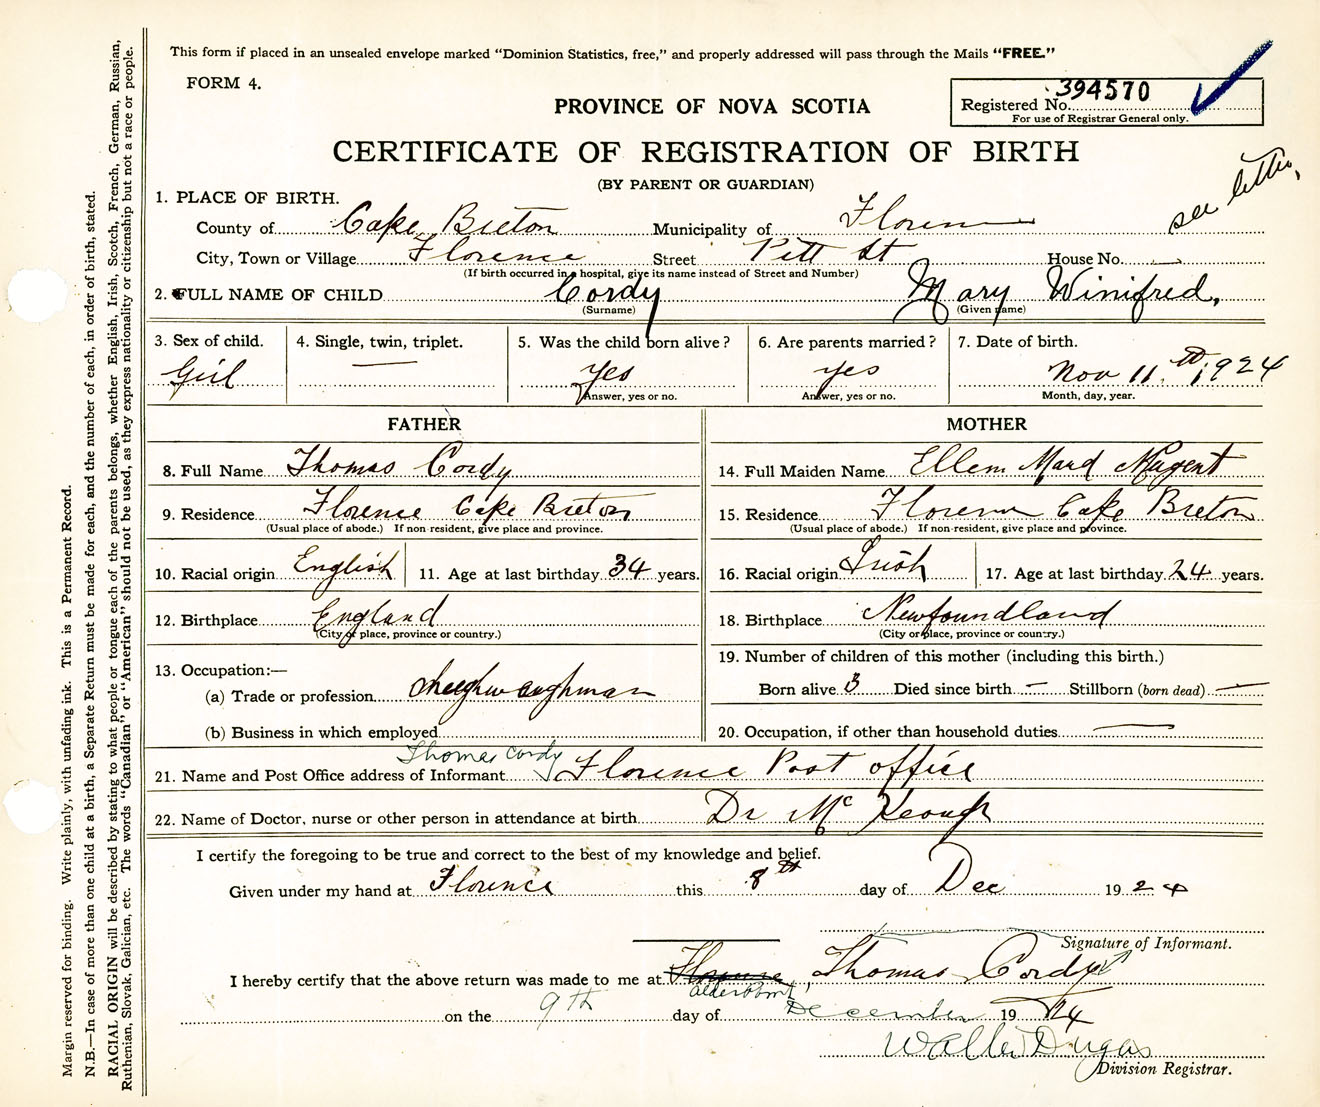 This form if placed in an unsealed envelope marked "Dominion Statistics, free," and properly addressed will pass through the Mails "FREE."
FORM 4.
394570
Registered No.
For use of Registrar General only.
PROVINCE OF NOVA SCOTIA
CERTIFICATE OF REGISTRATION OF BIRTH
(BY PARENT OR GUARDIAN)
see letter,
1. PLACE OF BIRTH.
County of Cape Breton Municipality of Florence
City, Town or Village Florence Street Pitt St House No. —
(If birth occurred in hospital, give its name instead of Street and Number)
2. FULL NAME OF CHILD Cordy Mary Winifred,
(Surname) (Given name)
3. Sex of child. 4. Single, twin, triplet. 5. Was the child born alive? 6. Are parents married? 7. Date of birth.
Girl — Yes yes Nov 11th, 1924
Answer, yes or no. Answer, yes or no. Month, day, year.
FATHER MOTHER
8. Full Name Thomas Cordy 14. Full Maiden Name Ellem Maud Nugent
9. Residence Florence Cape Breton 15. Residence Florence Cape Breton
(Usual place of abode.) If non resident, give place and province. (Usual place of abode.) If non-resident, give place and province.
10. Racial origin English 11. Age at last birthday 34 years. 16. Racial origin Irish 17. Age at last birthday 24 years.
12. Birthplace England 18. Birthplace Newfoundland
(City or place, province or country.) (City or place, province or country.)
13. Occupation:— 19. Number of children of this mother (including this birth.)
(a) Trade or profession Born alive 3 Died since birth — Stillborn (born dead) —
(b) Business in which employed 20. Occupation, if other than household duties —
Thomas Cordy
21. Name and Post Office address of Informant Florence Post office
22. Name of Doctor, nurse or other person in attendance at birth Dr Mc Keough
I certify the foregoing to be true and correct to the best of my knowledge and belief.
Given under my hand at Florence this 8th day of Dec 1924
Signature of Informant.
I hereby certify that the above return was made to me at Florence, Thomas Cordy
Alder Point
on the 9th day of December 1924
Walter Dugas
Division Registrar.
Margin reserved for binding. Write plainly, with unfading ink. This is a Permanent Record.
N.B.—In case of more than one child at a birth, a Separate Return must be made for each, and the number of each, in order of birth, stated.
RACIAL ORIGIN will be described by stating to what people or tongue each of the parents belongs, whether English, Irish, Scotch, French, German, Russian,
Ruthenian, Slovak, Galician, etc. The words "Canadian" or "American" should not be used, as they express nationality or citizenship but not a race or people.